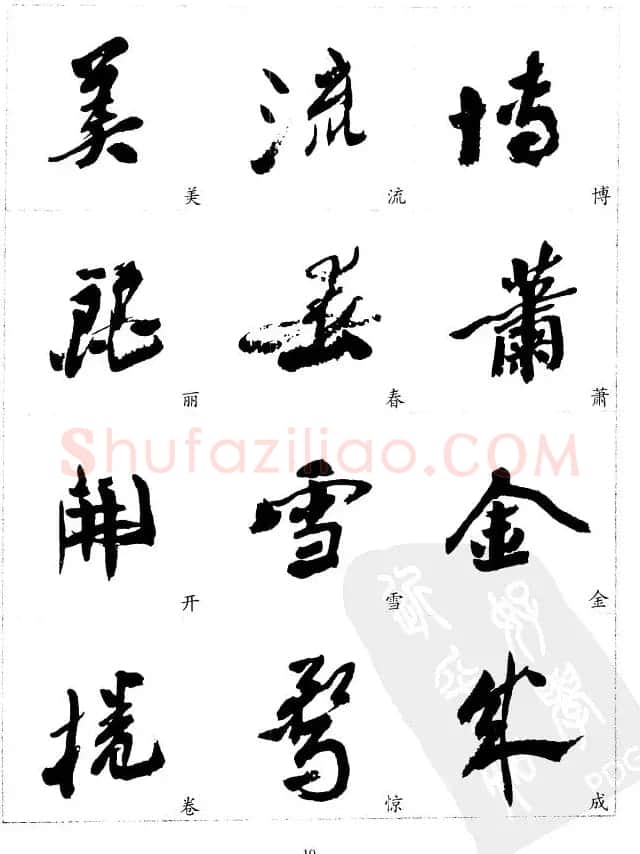 美 流 博
美 流 博
丽 春 萧
丽 春 蕭
Shufaziliao.com
開 雪 金
开 雪 金
捲 驚 成
卷 惊 成
PDG
10